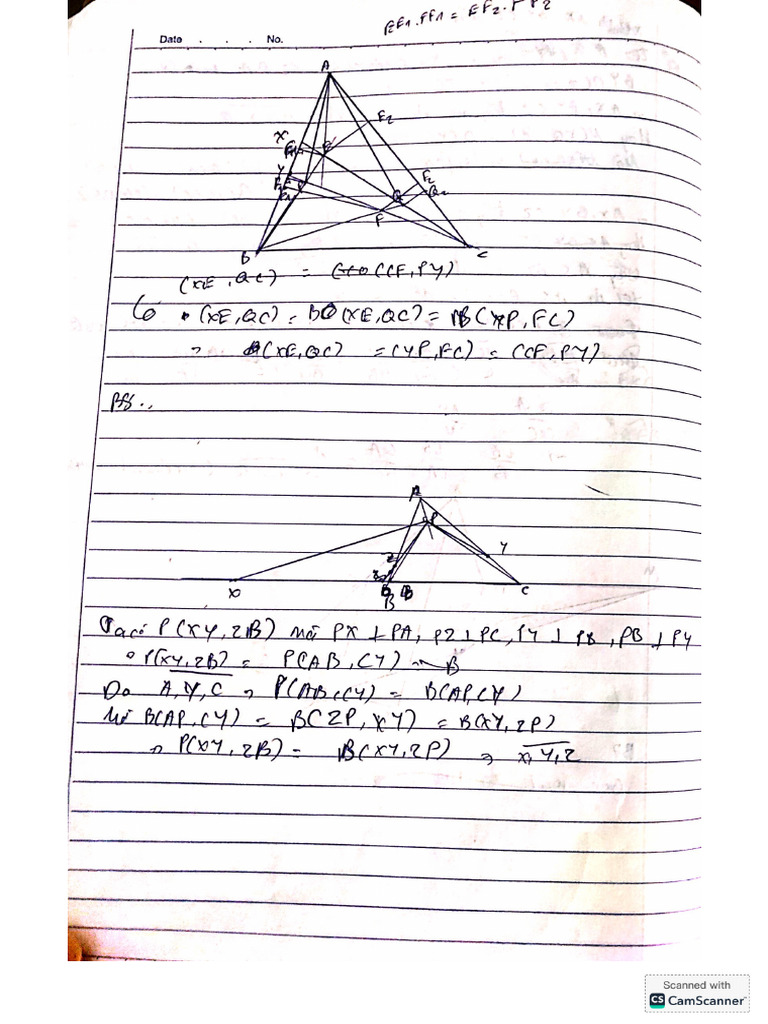 EE1.FF1 = EF2.FF2
Date . . . No.
A
X
E2
E
Y
F2
Q
Q2
F
B
C
(XE, QC) = (CF, PY)
Có • (XE, QC) = B(XE, QC) = B(YP, FC)
(XE, QC) = (YP, FC) = (CF, PY)
B8..
A
P
Y
Z
X
B
C
Ta có P(XY, ZB) mà PX ⊥ PA, PZ ⊥ PC, PY ⊥ PB, PB ⊥ PY
P(XY, ZB) = P(AB, CY)
Do A, Y, C → P(AB, CY) = B(AP, CY)
Mà B(AP, CY) = B(ZP, XY) = B(XY, ZP)
→ P(XY, ZB) = B(XY, ZP) → X, Y, Z
Scanned with
CS CamScanner